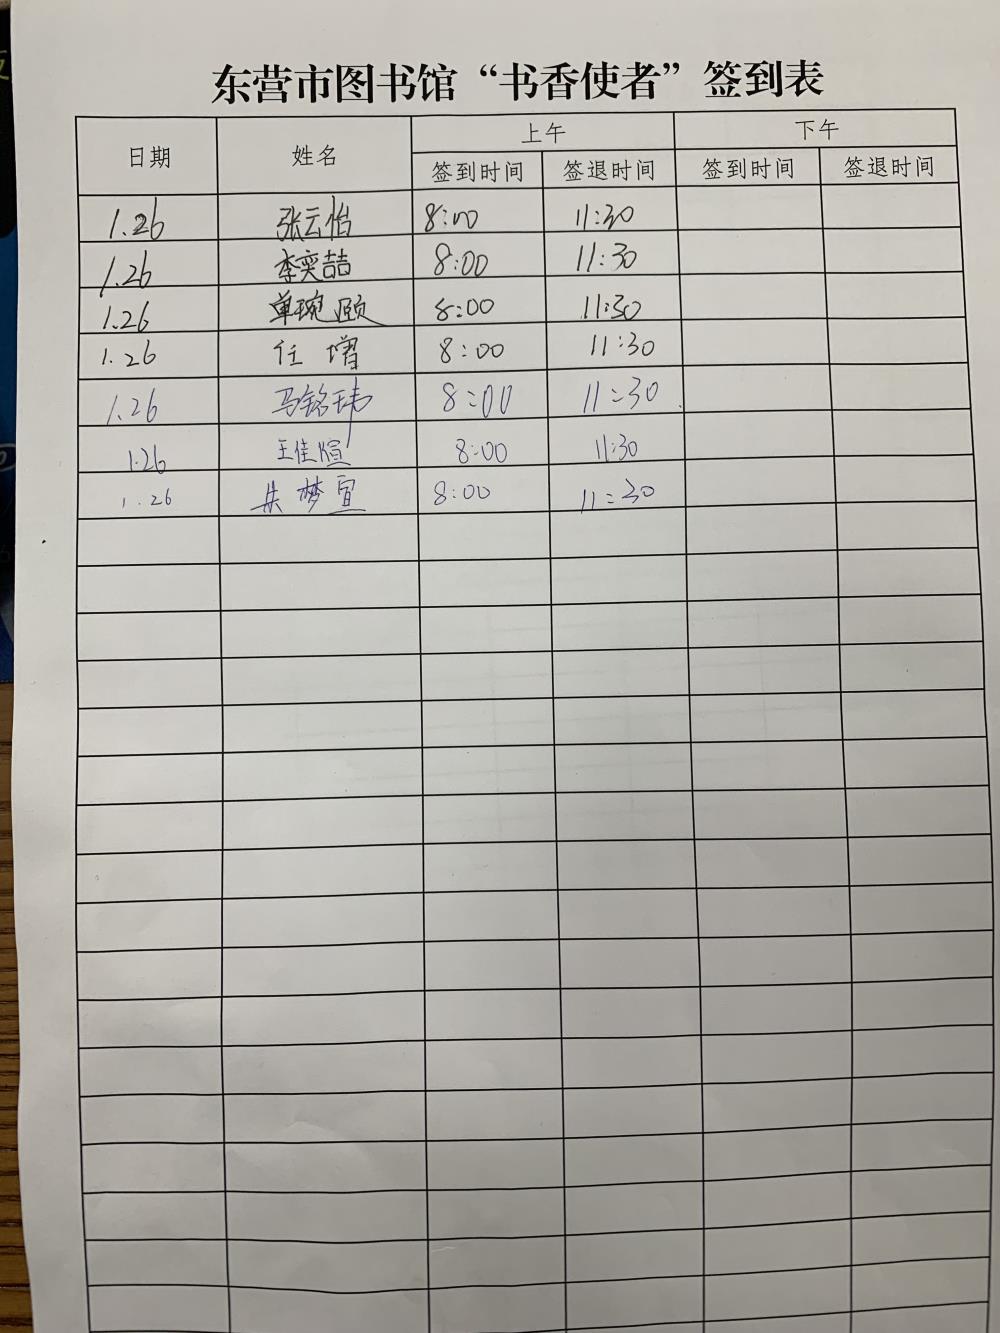 东营市图书馆“书香使者”签到表
日期 姓名 上午 下午
签到时间 签退时间 签到时间 签退时间
1.26 张云怡 8:00 11:30
1.26 李奕喆 8:00 11:30
1.26 单琬颐 8:00 11:30
1.26 任增 8:00 11:30
1.26 马铭玮 8:00 11:30
1.26 王佳煊 8:00 11:30
1.26 朱梦宣 8:00 11:30